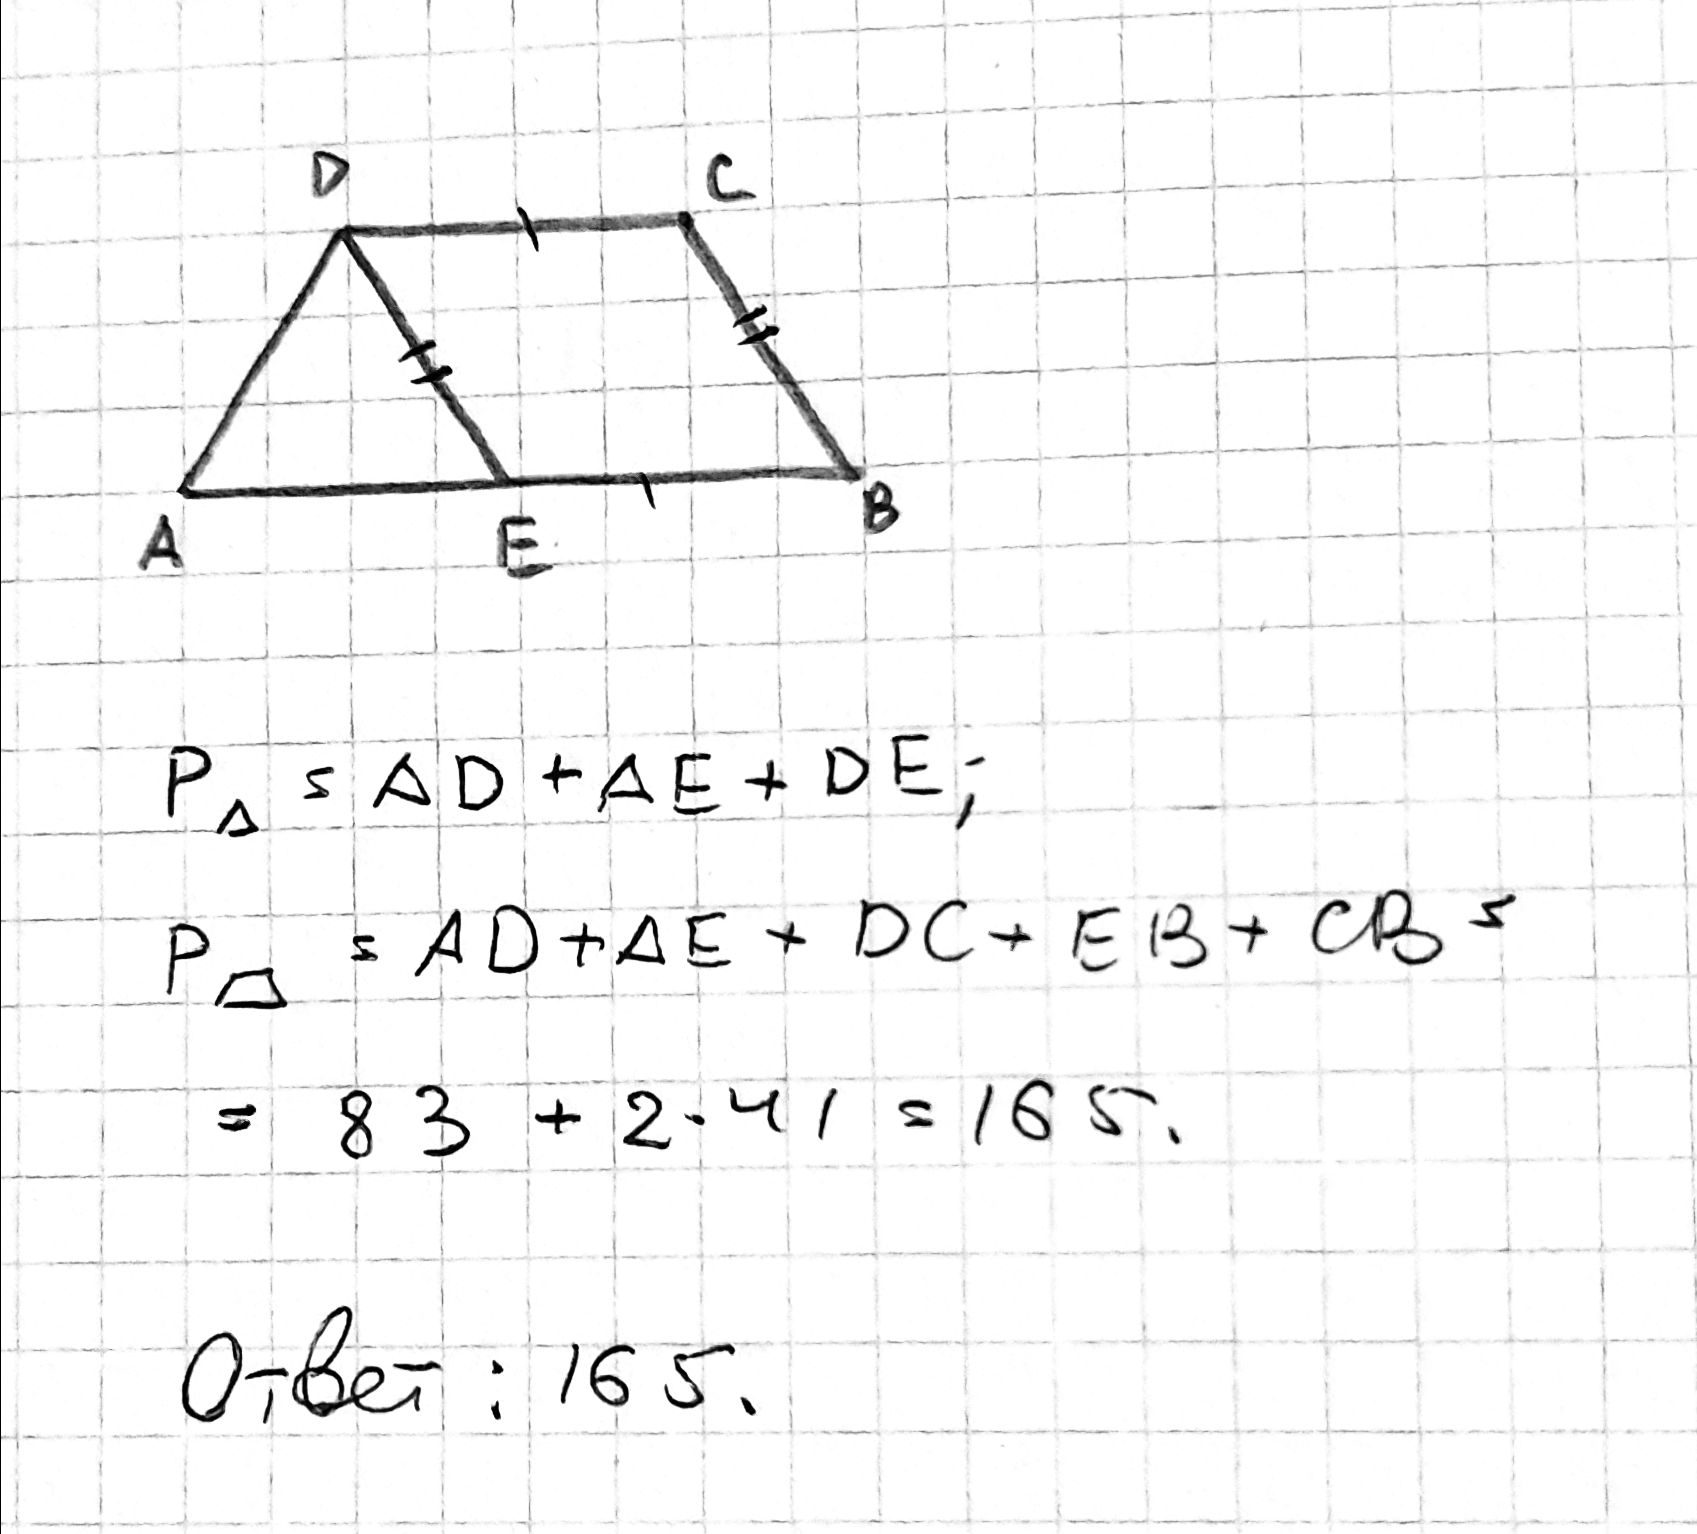 D C
A E B
P△ = AD + AE + DE;
P⏢ = AD + AE + DC + EB + CB =
= 83 + 2·41 = 165.
Ответ: 165.